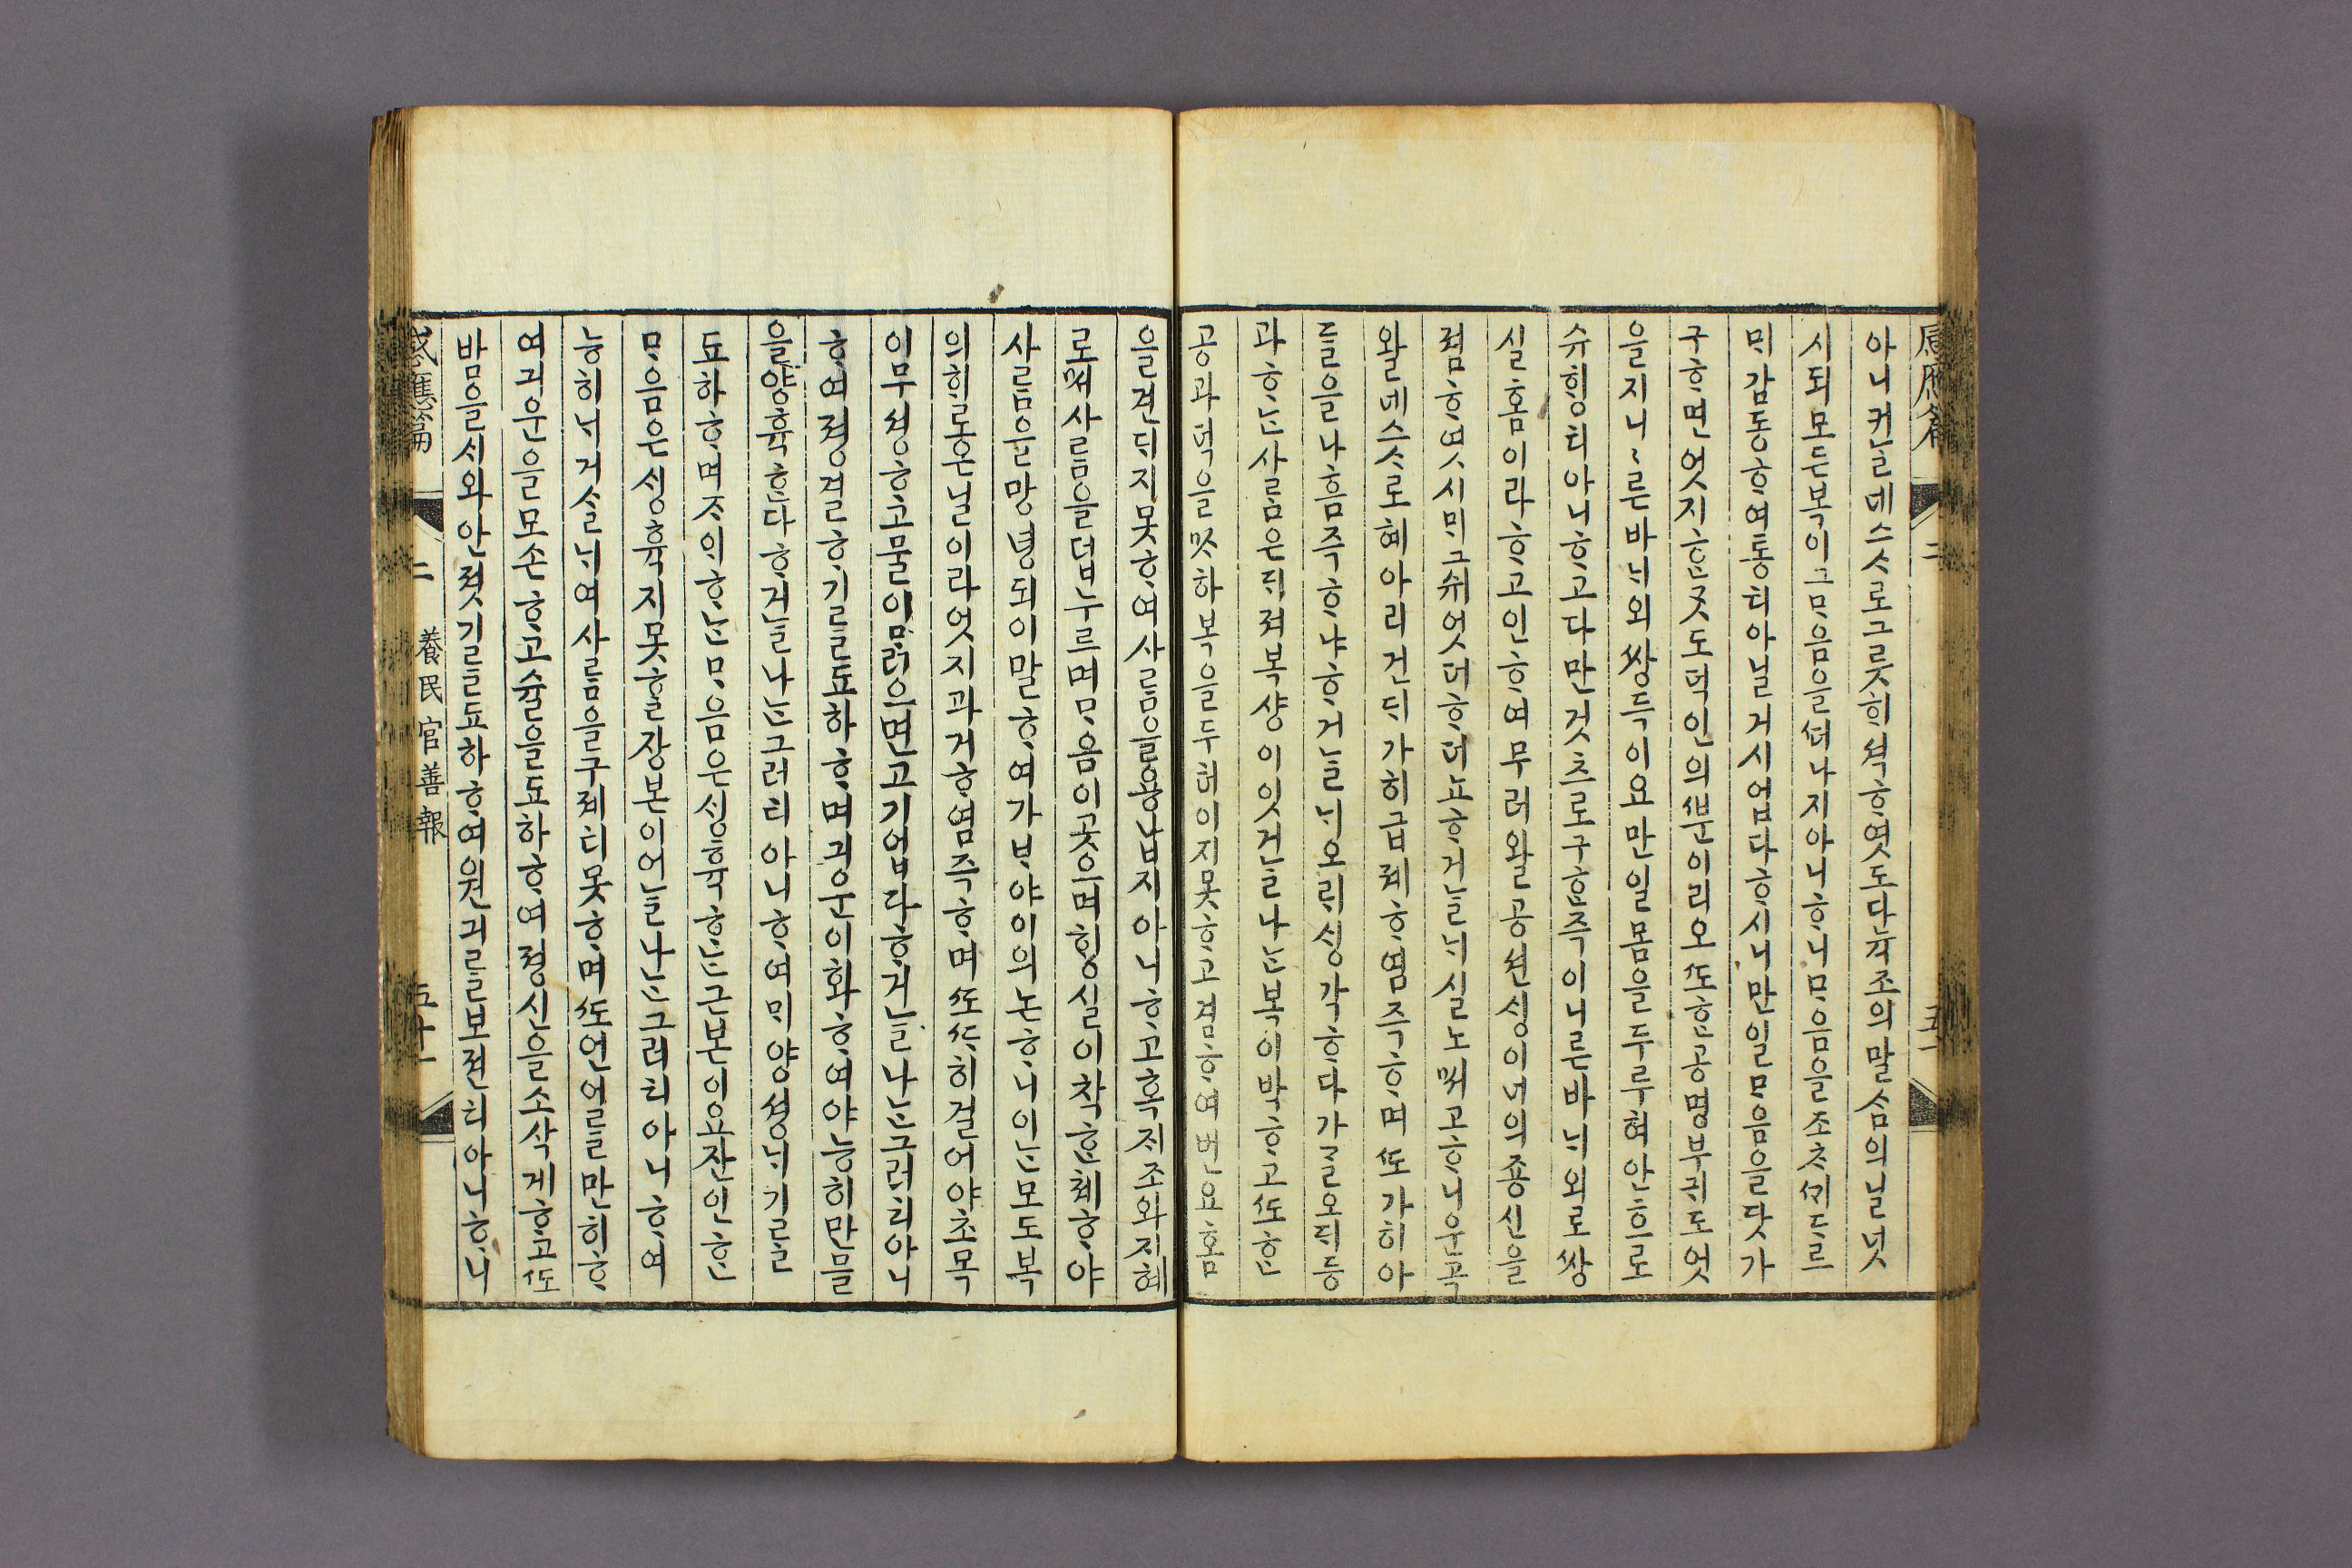 感應篇 二 五十一
아니커ᄂᆞᆯ네스ᄉᆞ로그릇히셕ᄒᆞ엿도다륙조의말ᄉᆞᆷ의닐넛
시되모든복이그ᄆᆞ음을ᄯᅥ나지아니ᄒᆞ니ᄆᆞ음을조ᄎᆞᄭᆡᄃᆞ르
ᄆᆡ감동ᄒᆞ여통치아닐거시업다ᄒᆞ시니만일ᄆᆞ음을닷가
구ᄒᆞ면엇지ᄒᆞᆫ곳도덕인의ᄲᅮᆫ이리오ᄯᅩᄒᆞᆫ공명부귀도엇
을지니니ᄅᆞᆫ바ᄂᆡ외ᄡᅡᆼ득이오만일몸을두루혀안흐로
슈ᄒᆡᆼ치아니ᄒᆞ고다만것ᄎᆞ로구ᄒᆞᆫ즉이니ᄅᆞᆫ바ᄂᆡ외로ᄡᅡᆼ
실홈이라ᄒᆞ고인ᄒᆞ여무러왈공션ᄉᆡᆼ이너의죵신을
졈ᄒᆞ엿시ᄆᆡ그쉬엇더ᄒᆞ더뇨ᄒᆞ거ᄂᆞᆯᄂᆡ실노ᄡᅥ고ᄒᆞ니운곡
왈네스ᄉᆞ로혜아리건ᄃᆡ가히급졔ᄒᆞ염즉ᄒᆞ며ᄯᅩ가히아
ᄃᆞᆯ을나흠즉ᄒᆞ냐ᄒᆞ거ᄂᆞᆯᄂᆡ오ᄅᆡᄉᆡᆼ각ᄒᆞ다가ᄀᆞᆯ오ᄃᆡ등
과ᄒᆞᄂᆞᆫ사ᄅᆞᆷ은ᄃᆡ져복샹이잇거ᄂᆞᆯ나ᄂᆞᆫ복이박ᄒᆞ고ᄯᅩᄒᆞᆫ
공과덕을ᄡᅡ하복을두터이지못ᄒᆞ고겸ᄒᆞ여번요홈
을견ᄃᆡ지못ᄒᆞ여사ᄅᆞᆷ을용납지아니ᄒᆞ고혹ᄌᆡ조와지혜
로ᄡᅥ사ᄅᆞᆷ을덥누르며ᄆᆞ음이곳으며ᄒᆡᆼ실이착ᄒᆞᆫ쳬ᄒᆞ야
사ᄅᆞᆷ은망녕되이말ᄒᆞ여가ᄇᆞ야이의논ᄒᆞ니이ᄂᆞᆫ모도복
의ᄒᆡ로온닐이라엇지과거ᄒᆞ염즉ᄒᆞ며ᄯᅩᄯᅡ히걸어야초목
이무셩ᄒᆞ고물이ᄆᆞᆰ으면고기업다ᄒᆞ거ᄂᆞᆯ나ᄂᆞᆫ그러치아니
ᄒᆞ여졍결ᄒᆞ기ᄅᆞᆯ됴하ᄒᆞ며긔운이화ᄒᆞ여야능히만믈
을양휵ᄒᆞᆫ다ᄒᆞ거ᄂᆞᆯ나ᄂᆞᆫ그러치아니ᄒᆞ여ᄆᆡ양셩ᄂᆡ기ᄅᆞᆯ
됴하ᄒᆞ며ᄌᆞᄋᆡᄒᆞᄂᆞᆫᄆᆞ음은ᄉᆡᆼ휵ᄒᆞᄂᆞᆫ근본이오잔인ᄒᆞᆫ
ᄆᆞ음은ᄉᆡᆼ휵지못ᄒᆞᆯ장본이어ᄂᆞᆯ나ᄂᆞᆫ그러치아니ᄒᆞ여
능히ᄂᆡ거ᄉᆞᆯᄂᆡ여사ᄅᆞᆷ을구졔치못ᄒᆞ며ᄯᅩ언어ᄅᆞᆯ만히ᄒᆞ
여긔운을모손ᄒᆞ고술을됴하ᄒᆞ여졍신을소삭게ᄒᆞ고ᄯᅩ
밤을ᄉᆡ와안졋기ᄅᆞᆯ됴하ᄒᆞ여원긔ᄅᆞᆯ보젼치아니ᄒᆞ니
感應篇 二 養民官善報 五十一